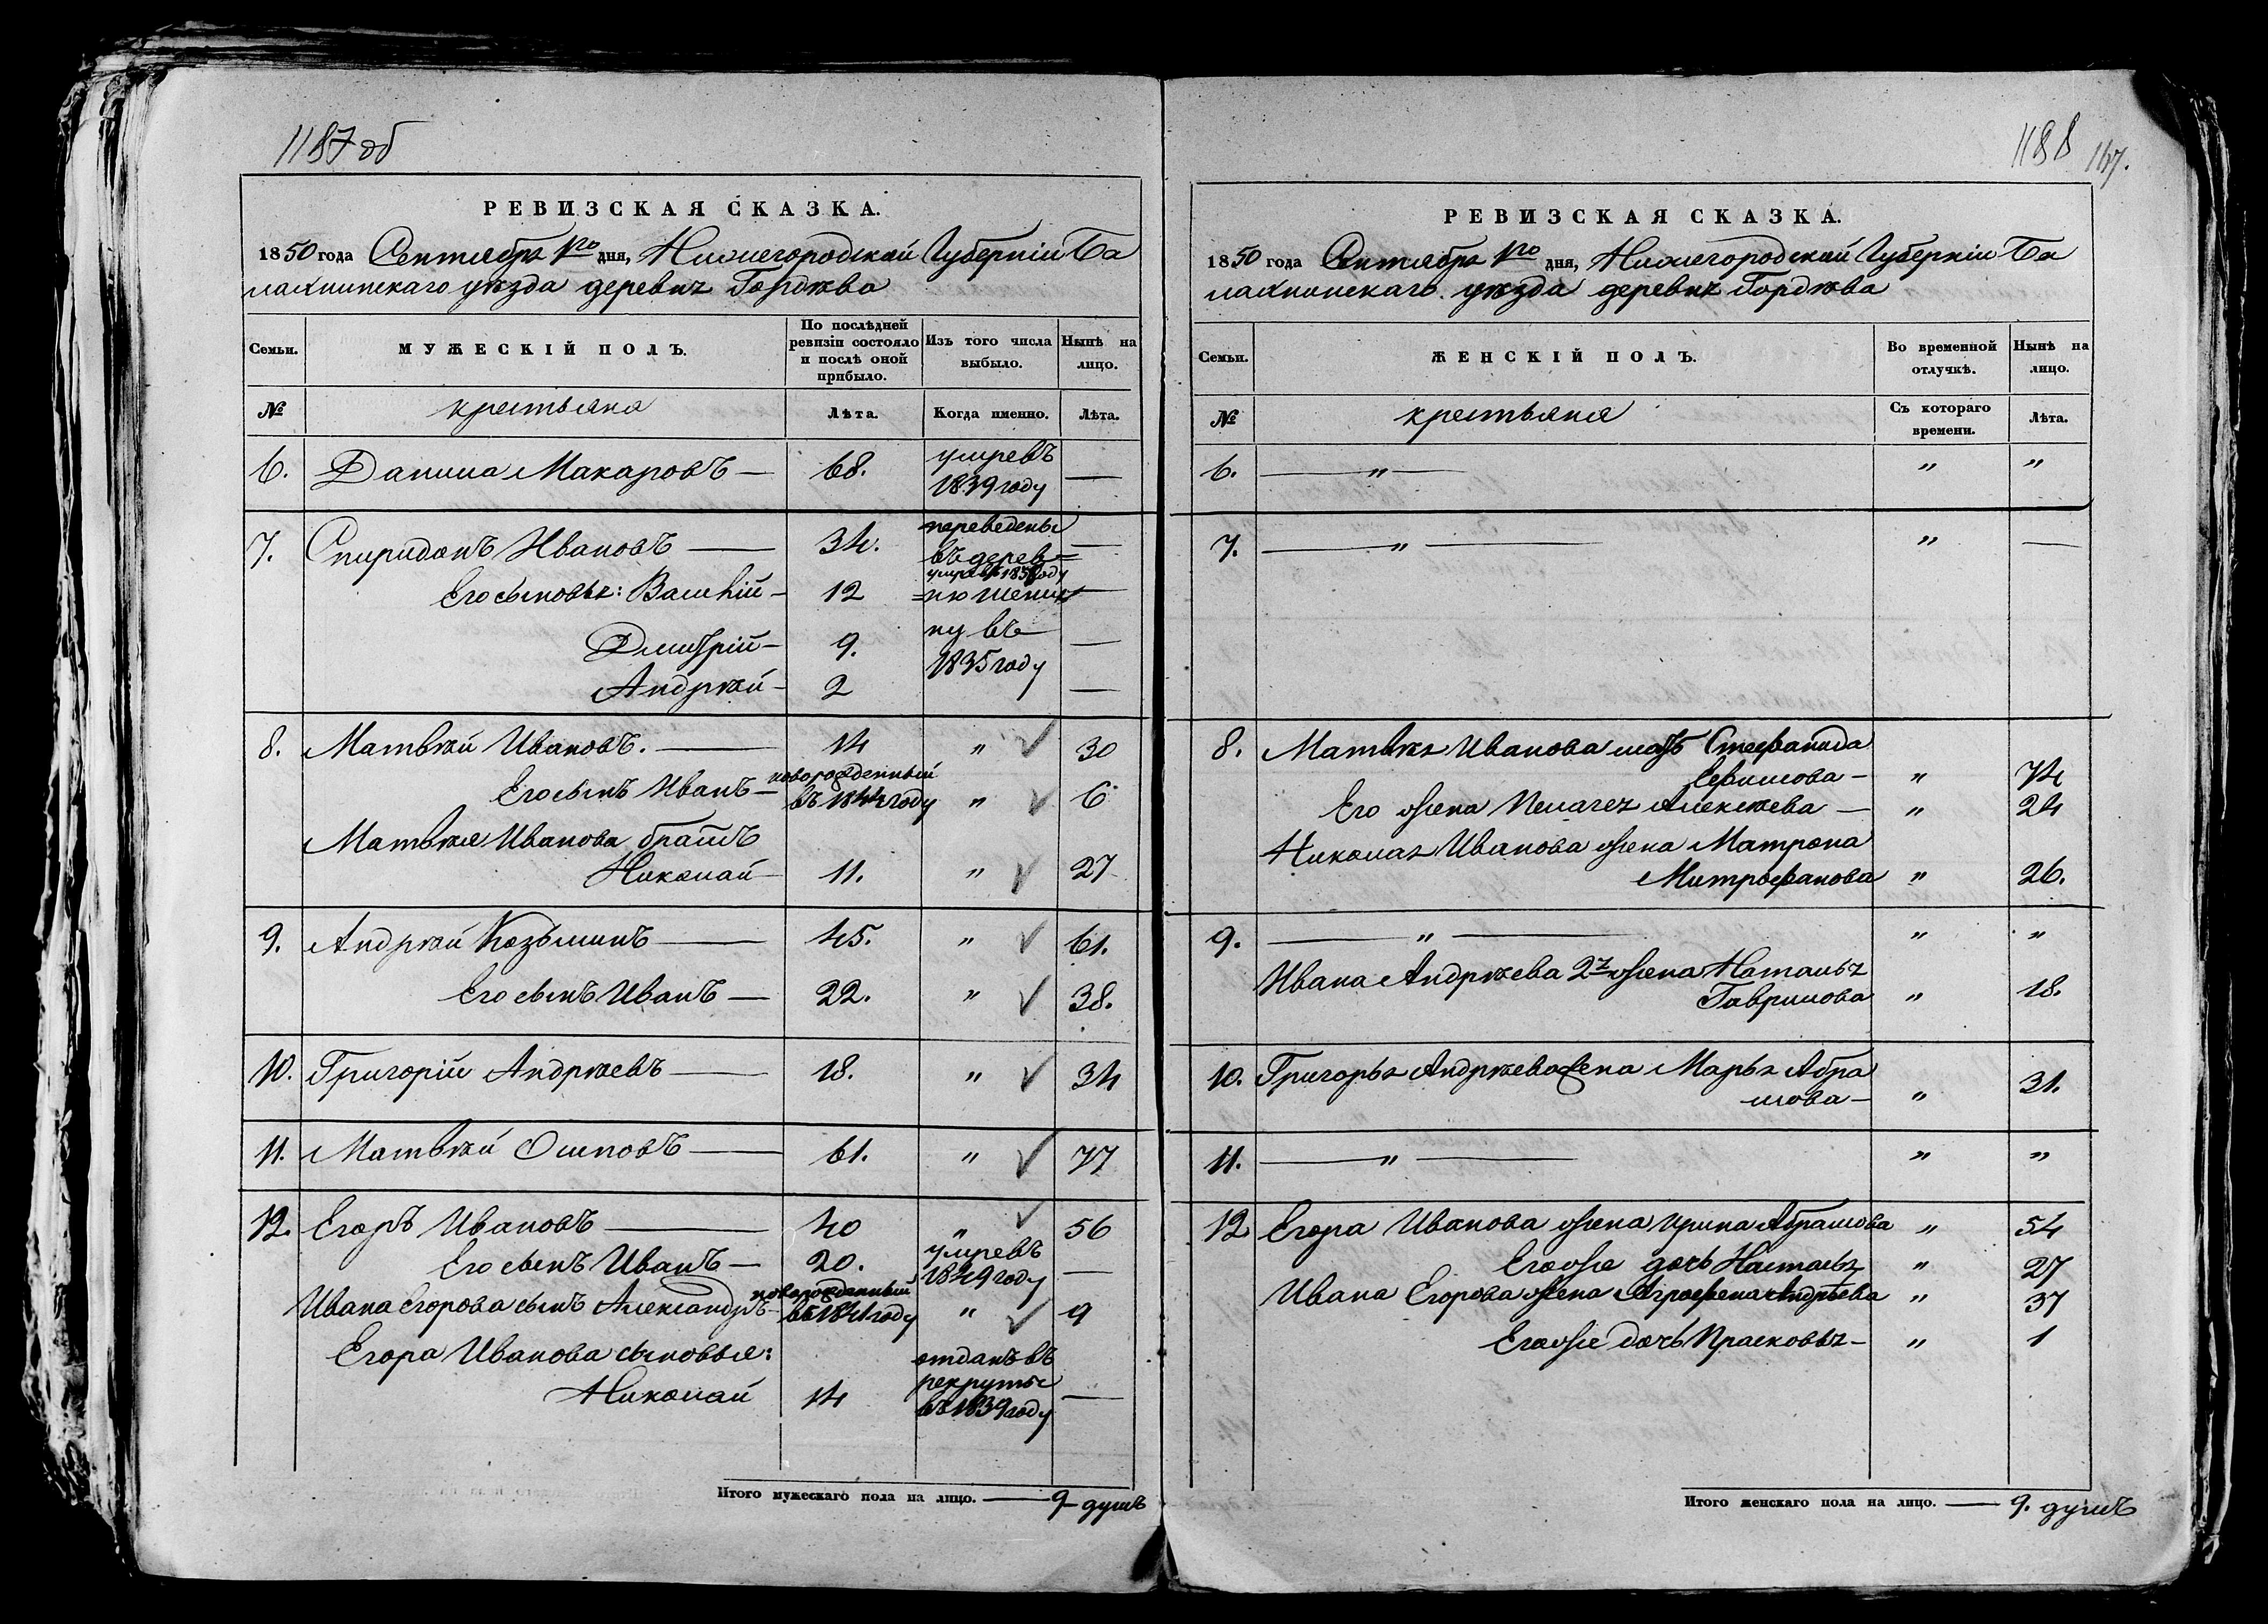 1187 об
РЕВИЗСКАЯ СКАЗКА.
1850 года Сентября 1го дня, Нижегородской Губерніи Ба
лахнинскаго уѣзда деревни Гордѣва
Семьи.
МУЖЕСКІЙ ПОЛЪ.
По послѣдней ревизіи состояло и послѣ оной прибыло.
Изъ того числа выбыло.
Нынѣ на лицо.
№ крестьяня Лѣта. Когда именно. Лѣта.
6. Данила Макаровъ — 68. умревъ 1839 году —
7. Спиридонъ Ивановъ — 34. переведены —
въ дерев=
умревъ 185 году
Его сыновья: Василій — 12 =ню —
Дмитрій — 9. ну въ —
Андрѣй — 2 1835 году —
8. Матвѣй Ивановъ. — 14 „ 30
Его сынъ Иванъ — новорожденный въ 1844 году „ 6
Матвѣя Иванова братъ
Николай — 11. „ 27
9. Андрѣй Козьминъ — 45. „ 61.
Его сынъ Иванъ — 22. „ 38.
10. Григорій Андрѣевъ — 18. „ 34
11. Матвѣй Осиповъ — 61. „ 77
12. Егоръ Ивановъ — 40 „ 56
Его сынъ Иванъ — 20. умревъ 1849 году —
Ивана Егорова сынъ Александръ — новорожденный въ 1841 году „ 9
Егора Иванова сыновья:
Николай 14 отданъ въ рекруты въ 1839 году —
Итого мужескаго пола на лицо. — 9 душъ
1188 167.
РЕВИЗСКАЯ СКАЗКА.
1850 года Сентября 1го дня, Нижегородской Губерніи Ба
лахнинскаго уѣзда деревни Гордѣва
Семьи.
ЖЕНСКІЙ ПОЛЪ.
Во временной отлучкѣ.
Нынѣ на лицо.
№ крестьяня Съ котораго времени. Лѣта.
6. — „ — „ „
7. — „ — „ —
8. Матвѣя Иванова мать Стефанида
Ефимова — „ 74
Его жена Пелагея Алексѣева — „ 24
Николая Иванова жена Матрона
Митрофанова „ 26.
9. — „ — „ „
Ивана Андрѣева 2я жена Наталья
Гаврилова „ 18.
10. Григорья Андрѣева жена Марья Абра
мова — „ 31.
11. — „ — „ „
12 Егора Иванова жена Ирина Абрамова „ 54
Егожа дочь Настасья „ 27
Ивана Егорова жена Аграфена Андрѣева „ 37
Егоже дочь Прасковья — „ 1
Итого женскаго пола на лицо. — 9. душъ